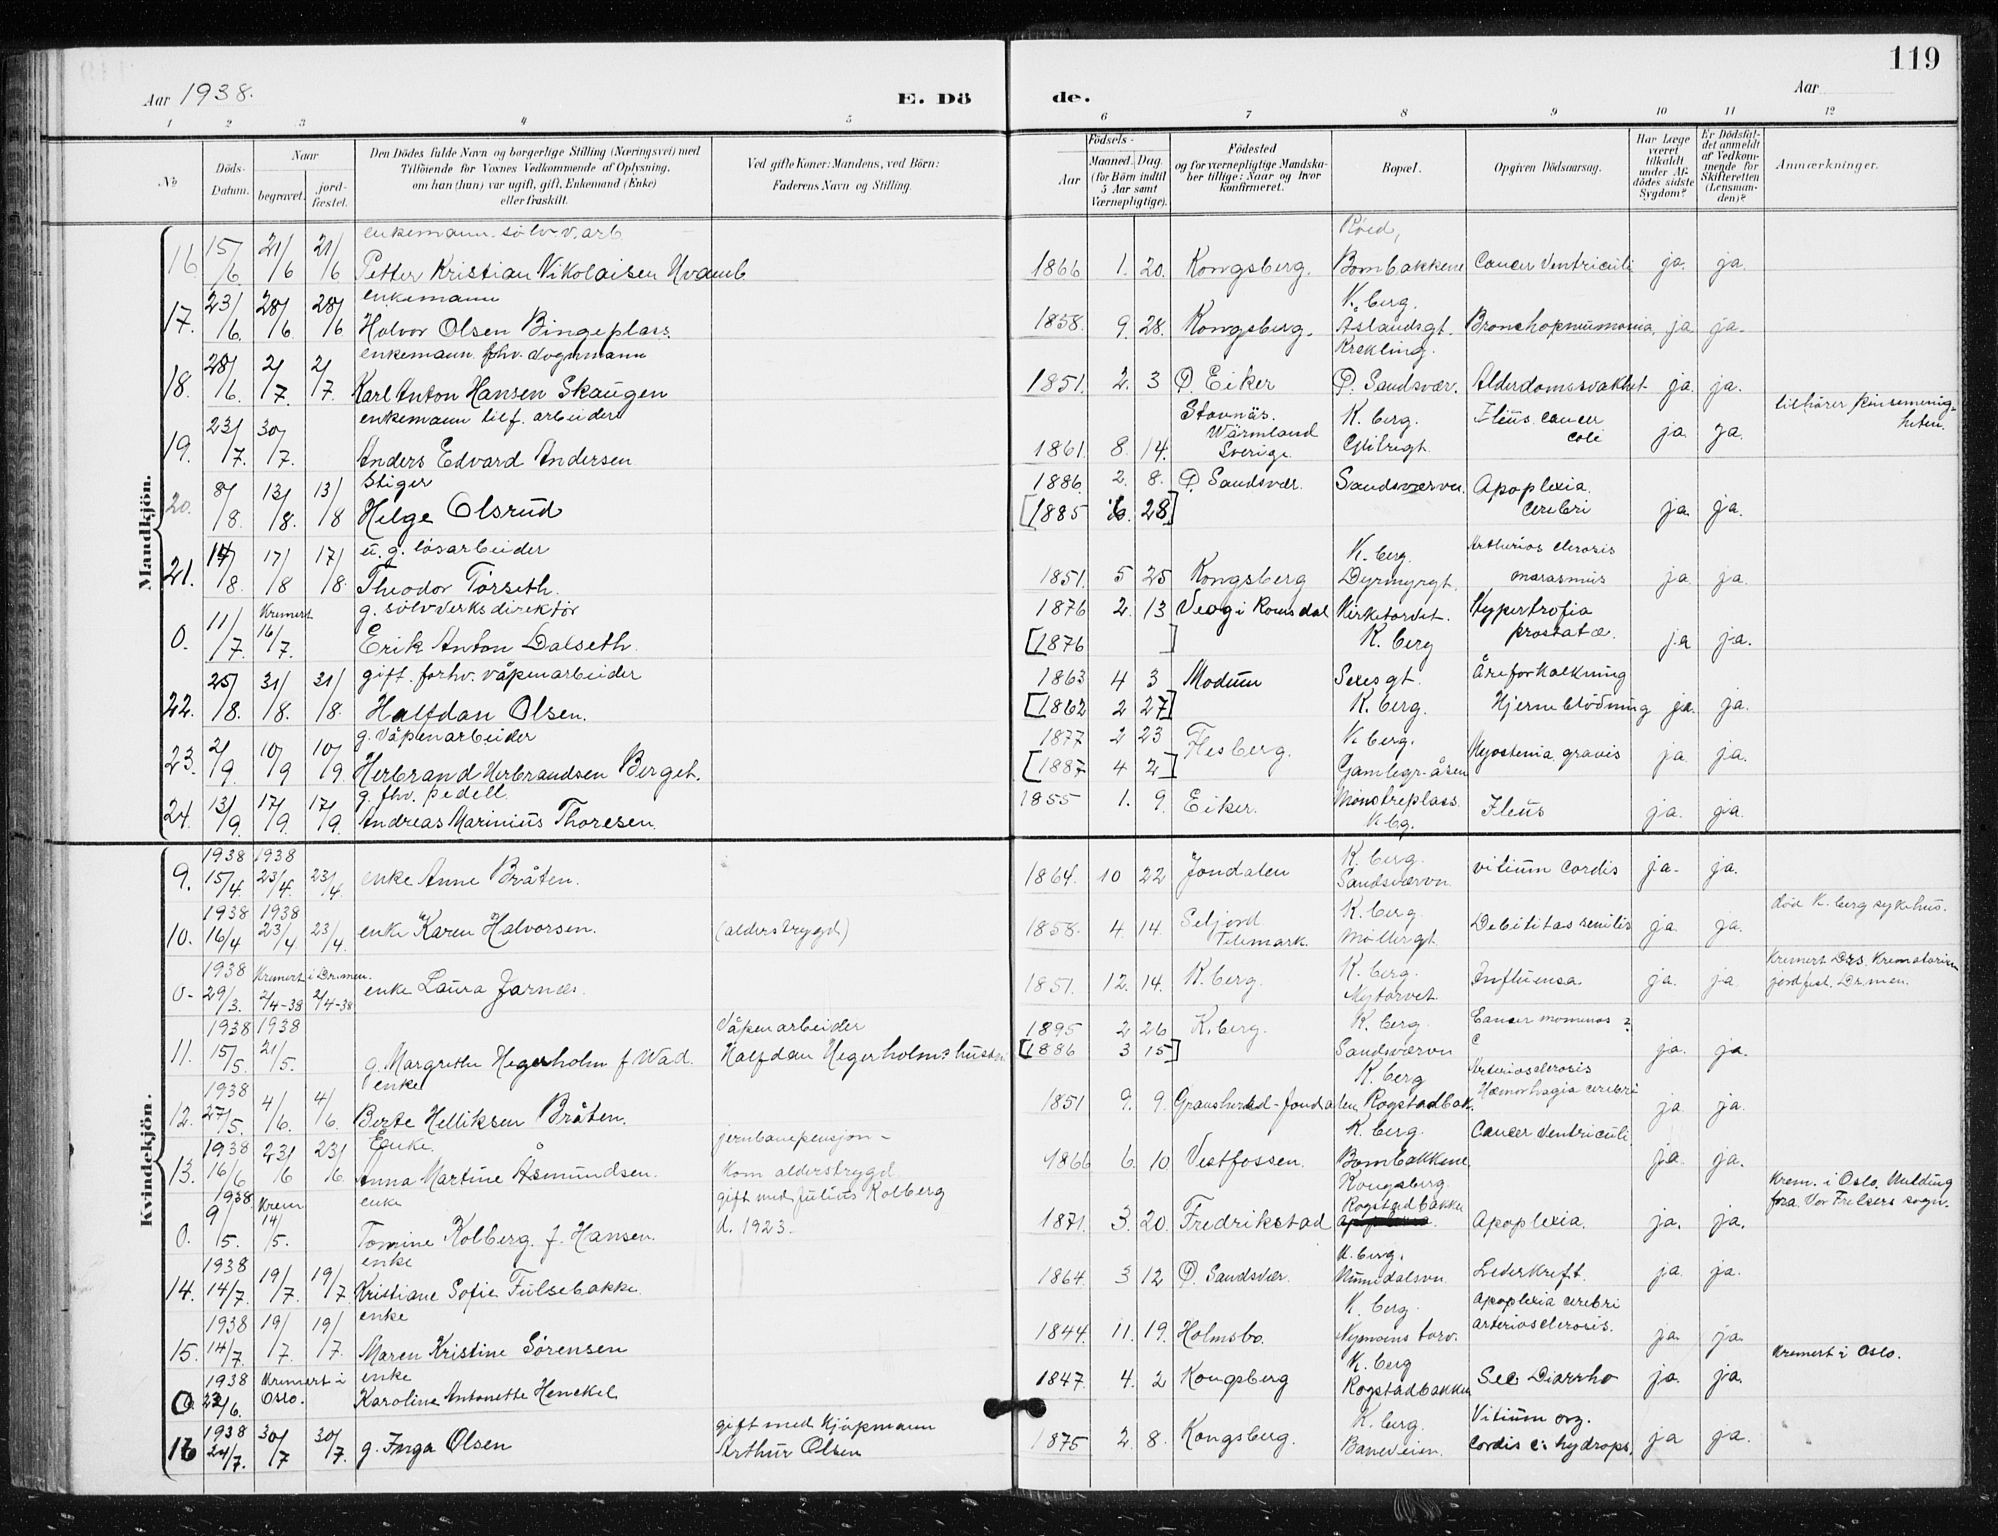 119
Aar 1938.
E. Dö de.
Aar
1 2 3 4 5 6 7 8 9 10 11 12
No
Döds-Datum.
Naar
begravet.
jordfæstet.
Den Dödes fulde Navn og borgerlige Stilling (Næringsvei) med
Tilföiende for Voxnes Vedkommende af Oplysning,
om han (hun) var ugift, gift, Enkemand (Enke)
eller fraskilt.
Ved gifte Koner: Mandens, ved Börn:
Faderens Navn og Stilling.
Födsels-
Aar
Maaned. Dag.
(for Börn indtil
5 Aar samt
Værnepligtige).
Födested
og for værnepligtige Mandska-
ber tillige: Naar og hvor
konfirmeret.
Bopæl.
Opgiven Dödsaarsag.
Har Læge
været
tilkaldt
under Af-
dödes sidste
Sygdom?
Er Dödsfal-
det anmeldt
af Vedkom-
mende for
Skifteretten
(Lensman-
den)?
Anmærkninger.
Mandkjön.
enkemann. sölv v. arb
16 15/6 21/6 21/6 Petter Kristian Nikolaisen 1866 1. 20. Kongsberg. Bombakkene Cancer Ventriculi ja. ja.
enkemann K. berg.
17. 23/6 28/6 28/6 Halvor Olsen Bingeplass. 1858. 9. 28. Kongsberg. Åslandsgt. Bronchopneumonia, ja ja.
enkemann fhv. vognmann Krekling.
18. 28/6. 2/7. 2/7. Karl Anton Hansen Skaugen 1851. 2. 3 Ø. Eiker Ø. Sandsvær. Alderdomssvakhet ja. ja.
enkemann tilf. arbeider Stavnäs. K. berg. Ileus cancer tilhører pinsemenig-
19. 23/7. 30/7. Anders Edvard Andersen 1861. 8. 14. Wärmland Sverige coli ja. ja. heten.
Stiger 1886. 2. 8. Ø. Sandsvær. Sandsværvn. Apoplexia
20. 8/8. 13/8. 13/8 Helge Olsrud [1885 6. 28] cerebri ja. ja.
u. g. løsarbeider K. berg. Arteriosclerosis
21. 14/8. 17/8 17/8. Theodor Torseth. 1851. 5 25 Kongsberg Dyrmyrgt. marasmus ja. ja.
Kremert g. sølvverksdirektør 1876 2. 13 Veøy i Romsdal Kirketorvet. Hypertrofia
0. 11/7. 16/7. Erik Anton Dalseth. [1876 ] K. berg prostatæ. ja ja.
gift. forhv. våpenarbeider 1863 4 3 Modum Sexesgt. Åreforkalkning
22. 25/8. 31/8. 31/8. Halfdan Olsen. [1862 2 27] K. berg. Hjerneblødning ja. ja.
g. våpenarbeider 1877 2 23 Flesberg. K. berg.
23. 2/9. 10/9 10/9. Herbrand Herbrandsen Berget. [1887 4 2] Gamlegr. åsen Myastenia gravis ja ja.
g. fhv. pedell 1855 1. 9. Eiker. Mønstreplass
24. 13/9. 17/9. 17/9. Andreas Marinius Thoresen. K bg. Ileus ja. ja.
Kvindekjön.
1938 1938 K. berg.
9. 15/4 23/4. 23/4. enke Anne Bråten. 1864. 10 22 Jondalen Sandsværvn. vitium cordis ja. ja.
1938 1938 K. berg død K. berg sykehus.
10. 16/4 23/4 23/4. enke Karen Halvorsen. (alderstrygd) 1858. 4. 14. Seljord Telemark. Møllergt. Debilitas senilis ja. ja.
1938 Kremert i Drmen. K. berg. Kremert Drs. Krematorium
0- 29/3. 2/4-38 2/4-38 enke Laura Jarnæs. 1851. 12. 14. K. berg. Nytorvet Influensa ja. ja jordfest. Drmen.
1938 1938 Våpenarbeider 1895 2 26 K. berg. K. berg. Cancer
11. 15/5. 21/5. g. Margrethe Hegerholm f Wad. Halfdan Hegerholms hustru [1886 3 15] Sandsværvn ja. ja.
1938 enke K. berg Arteriosclerosis
12. 27/5. 4/6. 4/6. Berte Helliksen Bråten. 1851 9. 9. Gransherad-Jondalen Rogstadbak. Hæmorhagia cerebri ja ja.
1938 Enke. jernbanepensjon- K. berg. Cancer Ventriculi
13. 16/6 23/6 23/6. Anna Martine Åsmundsen. kom alderstrygd. 1866 6. 10 Vestfossen. Bombakkene. ja. ja.
1938 Krem enke gift med Julius Kolberg Kongsberg. Krem. i Oslo. Melding
0. 9/5. 14/5. Tomine Kolberg. f. Hansen. d. 1923. 1871. 3. 20. Fredrikstad Rogstadbakken Apoplexia. ja. ja. fra Vor Frelsers sogn.
1938 enke K. berg.
14. 14/7. 19/7. 19/7 Kristiane Sofie Fulsebakke. 1864 3 12 Ø. Sandsvær. Numedalsvn. Leverkreft. ja. ja.
1938 enke K. berg. Apoplexia cerebri
15. 14/7. 19/7. 19/7. Maren Kristine Sørensen 1844 11. 19. Holmsbo. Nymoens torv. arteriosclerosis. ja. ja.
1938 Kremert i enke K. berg Kremert i Oslo.
0 22/6. Oslo. Karoline Antonette Henckel 1847. 4. 2 Kongsberg Rogstadbakken Diarrho ja. ja.
1938 gift med kjøpmann K. berg. Vitium org.
16 24/7. 30/7 30/7. g. Inga Olsen Arthur Olsen 1875 2. 8. Kongsberg. Baneveien. cordis c: hydrops. ja ja.